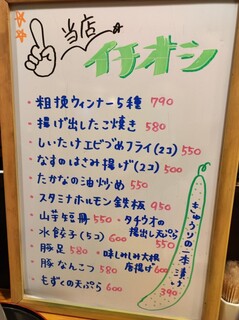 当店
イチオシ
・粗挽ウィンナー5種 790
・揚げ出したこ焼き 580
・しいたけエビつめフライ(2コ) 550
・なすのはさみ揚げ(2コ) 500
・たかなの油炒め 550
・スタミナホルモン鉄板 950
・山芋短冊 550
・タチウオの掲出し天ぷら 550
・水餃子(5コ) 600
・豚足 580
・味しみしみ大根唐揚げ 600
・豚なんこつ 580
・もずくの天ぷら 600
きゅうりの一本漬け
390